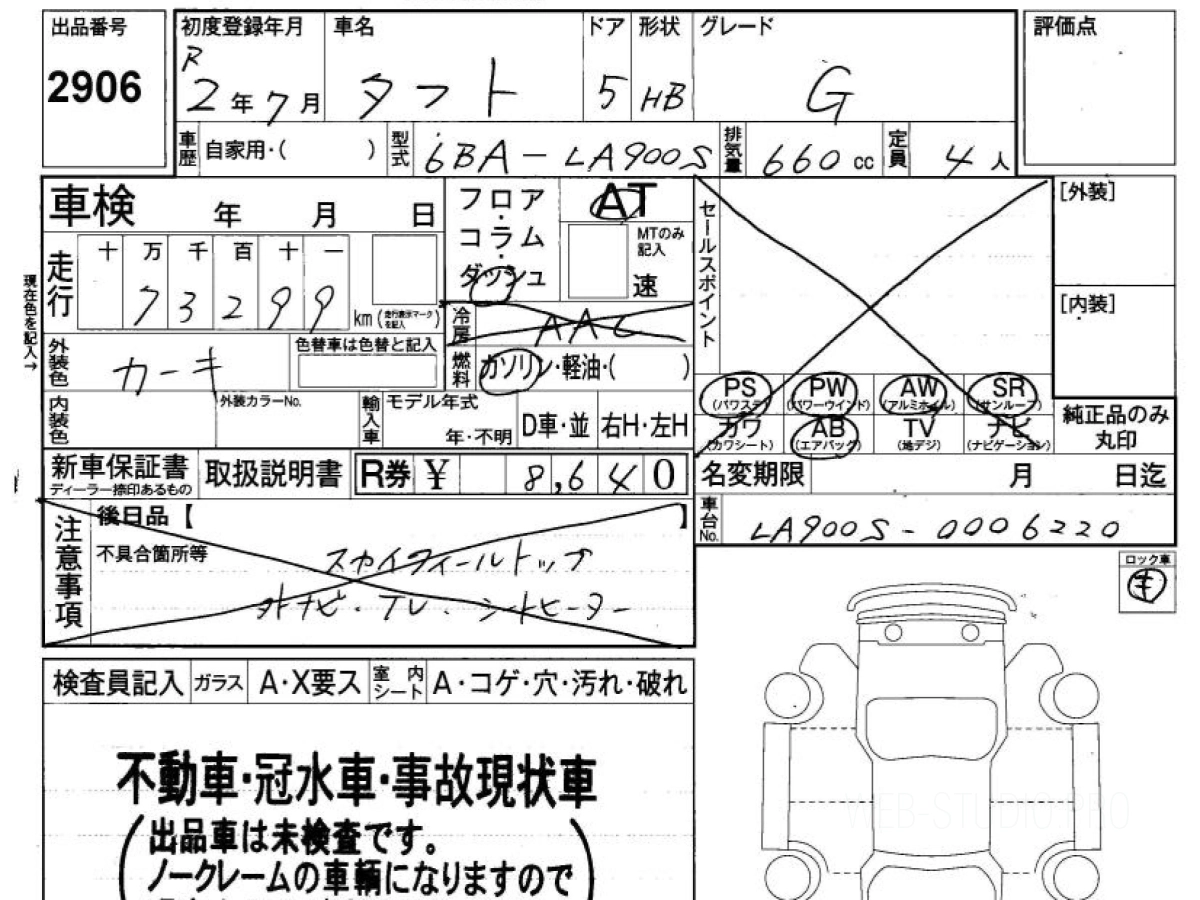 出品番号 初度登録年月 車名 ドア 形状 グレード 評価点
2906 R 2年7月 タフト 5 HB G
車歴 自家用・( ) 型式 6BA-LA900S 排気量 660cc 定員 4人
車検 年 月 日 フロア・コラム・ダッシュ AT セールスポイント [外装]
MTのみ記入 速
現在色を記入→
走行 十 万 千 百 十 一
7 3 2 9 9 km (走行表示マークを記入)
冷房 AAC
[内装]
外装色 カーキ 色替車は色替と記入 燃料 ガソリン・軽油・( )
PS (パワステ) PW (パワーウインド) AW (アルミホイル) SR (サンルーフ)
内装色 外装カラーNo. 輸入車 モデル年式 年・不明 D車・並 右H・左H
カワ (カワシート) AB (エアバッグ) TV (地デジ) ナビ (ナビゲーション) 純正品のみ丸印
新車保証書 ディーラー捺印あるもの 取扱説明書 R券 ¥ 8,640 名変期限 月 日迄
注意事項 後日品【 】 車台No. LA900S-0006220
不具合箇所等 スカイフィールトップ
外ナビ・TV・シートヒーター
ロック車
キ
検査員記入 ガラス A・X要ス 室内シート A・コゲ・穴・汚れ・破れ
不動車・冠水車・事故現状車
(出品車は未検査です。
ノークレームの車輌になりますので)
WEB-STUDIO.PRO